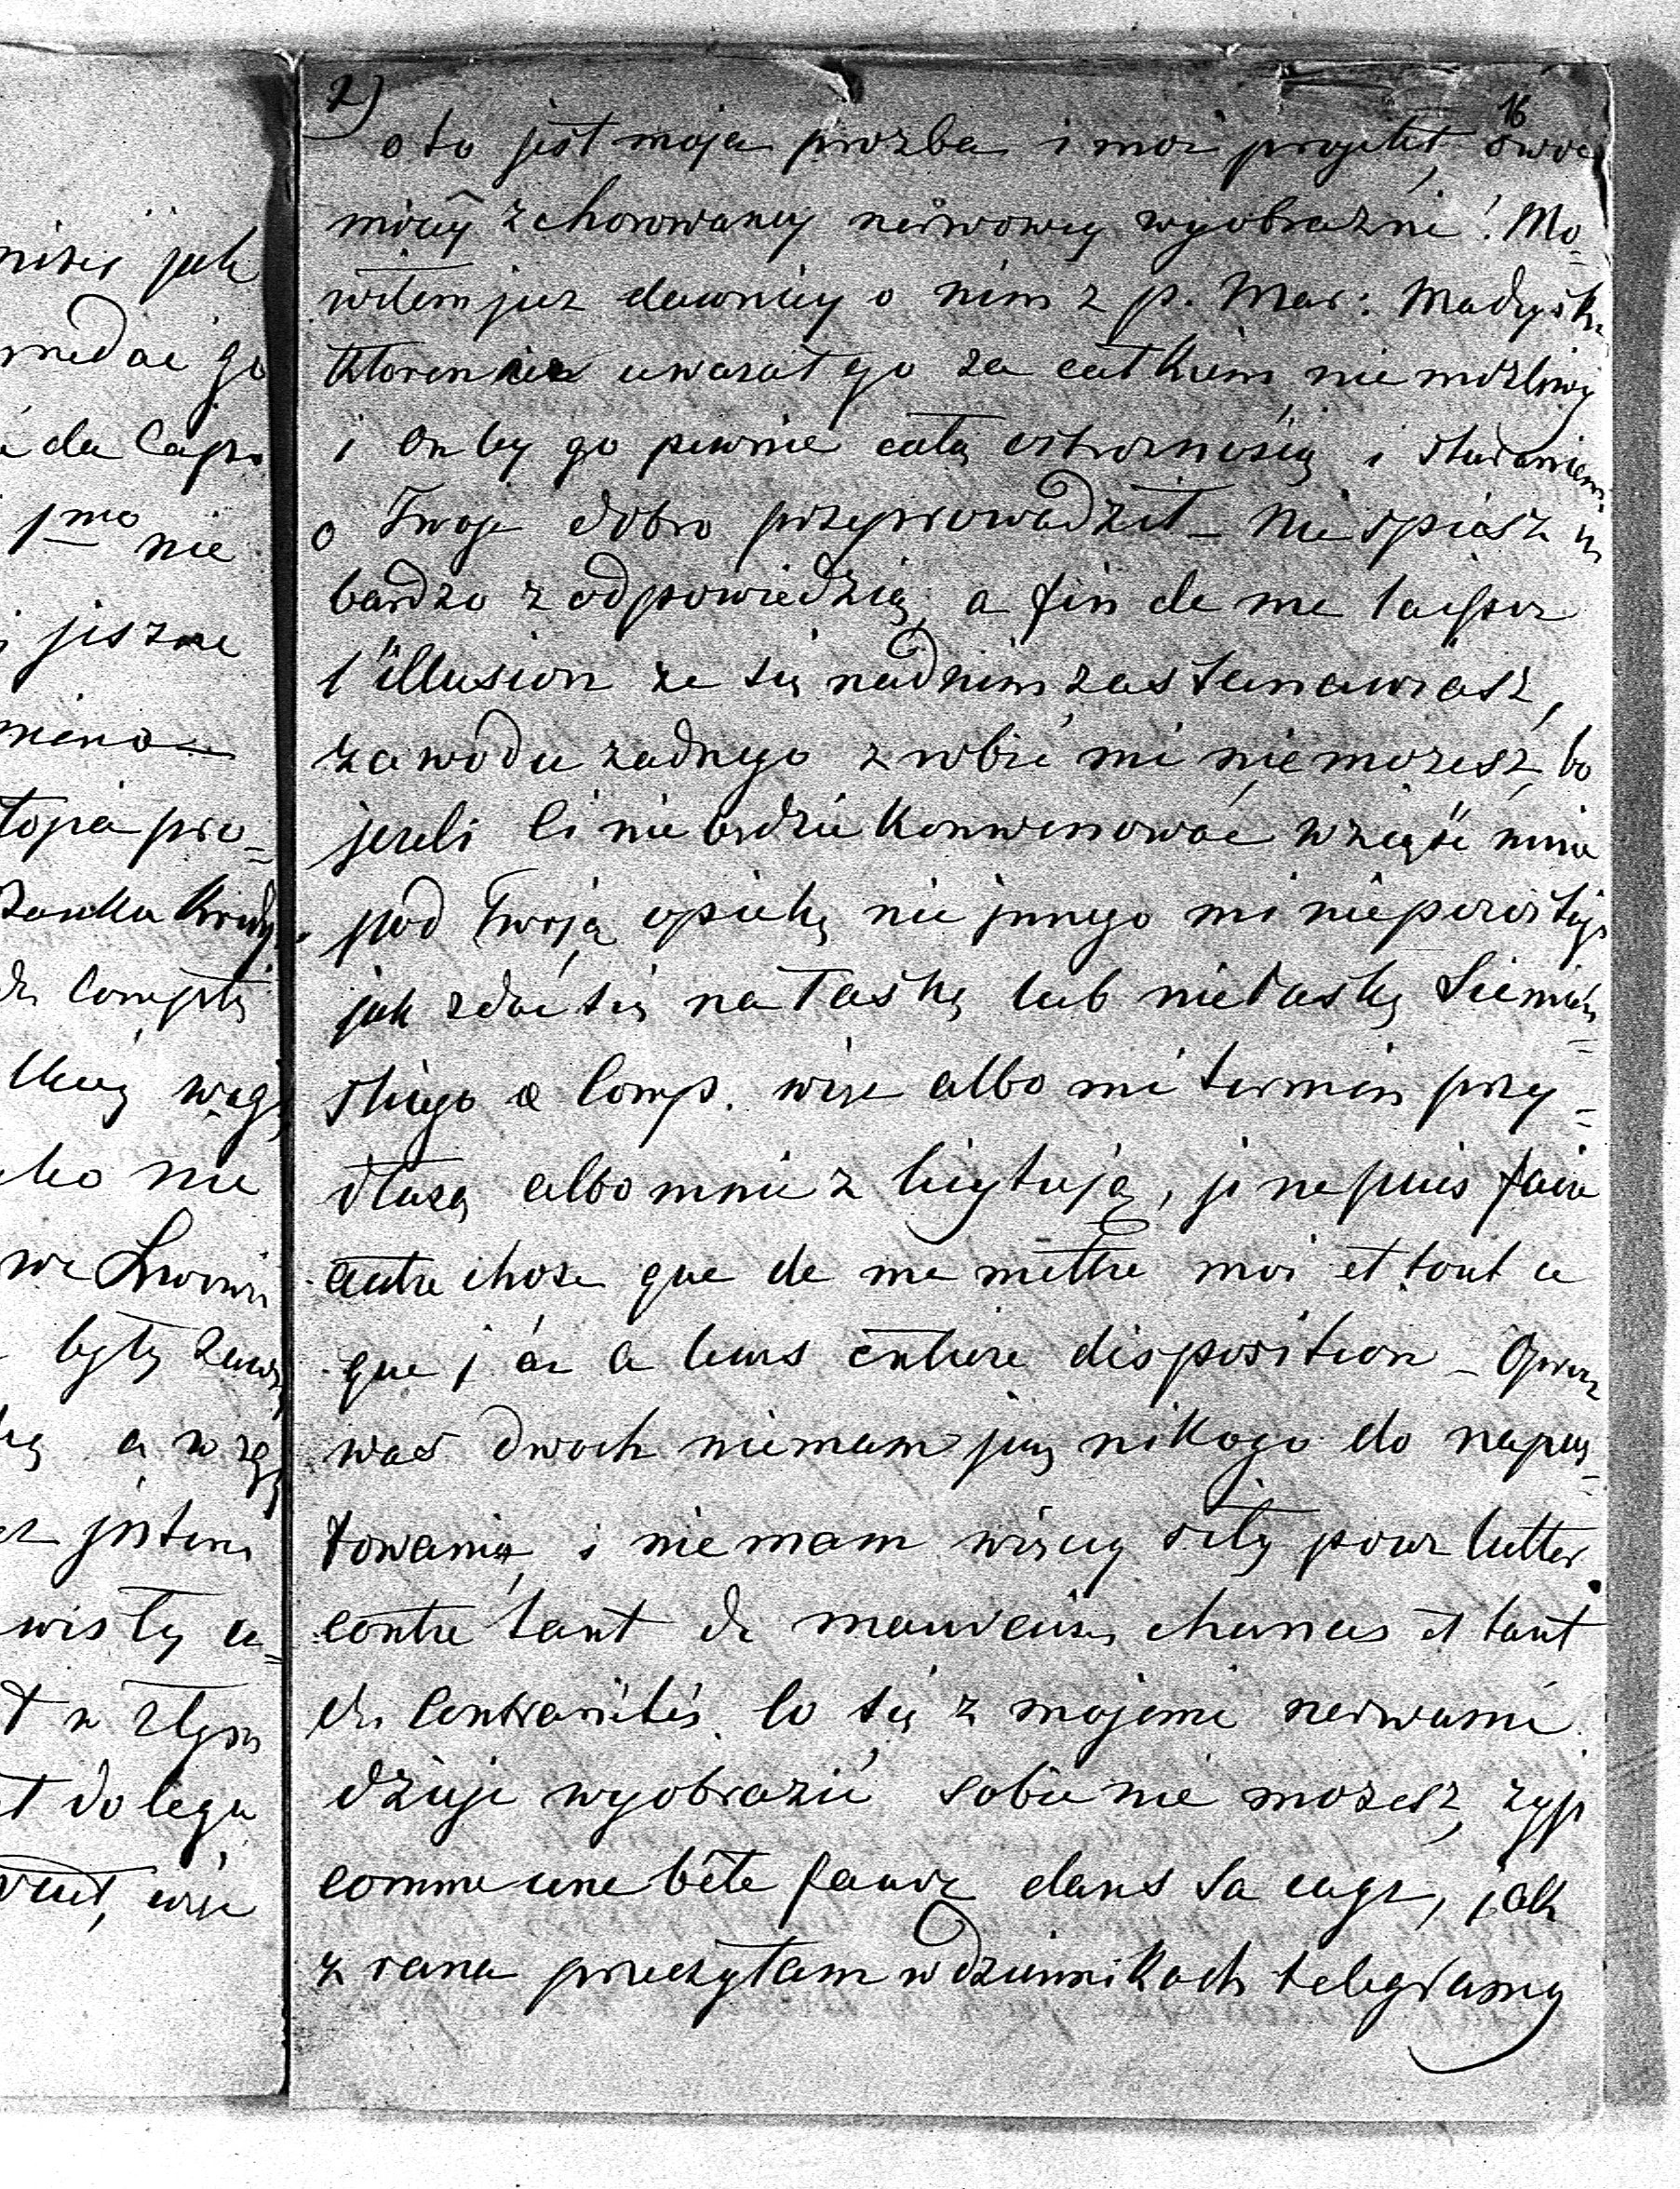 2)
16
oto jest moja prozba i moi projekt, owoc
mojej zchorowanej nerwowej wyobrazni! Mo=
wiłem juz dawniej o nim z p. Mar: Madeysk.
ktoren nie uwazał go za całkiem nie możliwy
i on by go pewnie całą ostroznością i staraniem
o Twoje dobro przeprowadził – Nie spiesz się
bardzo z odpowiedzią, a fin de me laisser
l'illusion ze się nadnim zastanawiasz,
zawodu zadnego zrobić mi niemozesz, bo
jezeli Ci nie będzie konwenować wziąść mnie
pod Twoją opiekę nic innego mi niepozostaje
jak zdać się na łaskę lub niełaskę Siemień=
skiego & Comp. więc albo mi termin przy=
dłuzą albo mnie zlicytują, je ne puis faire
autre chose que de me mettre moi et tout ce
que j'ai a leurs entiere disposition – Oprocz
was dwoch niemam juz nikogo do napas=
towania, i nie mam więcej siły pour lutter
contre tant de mauvaises chances et tant
de contrariétés. Co się z mojemi nerwami
dzieje wyobrazić sobie nie mozesz, zyje
comme une bête fauve dans sa cage, jak
z rana przeczytam w dziennikach telegramy
nisij jak
go
da Capo
1mo nie
jeszcze
topia pro=
Banku
wagi
nie
we Lwowie
były
a
jestem
t w złym
t do tego
więc